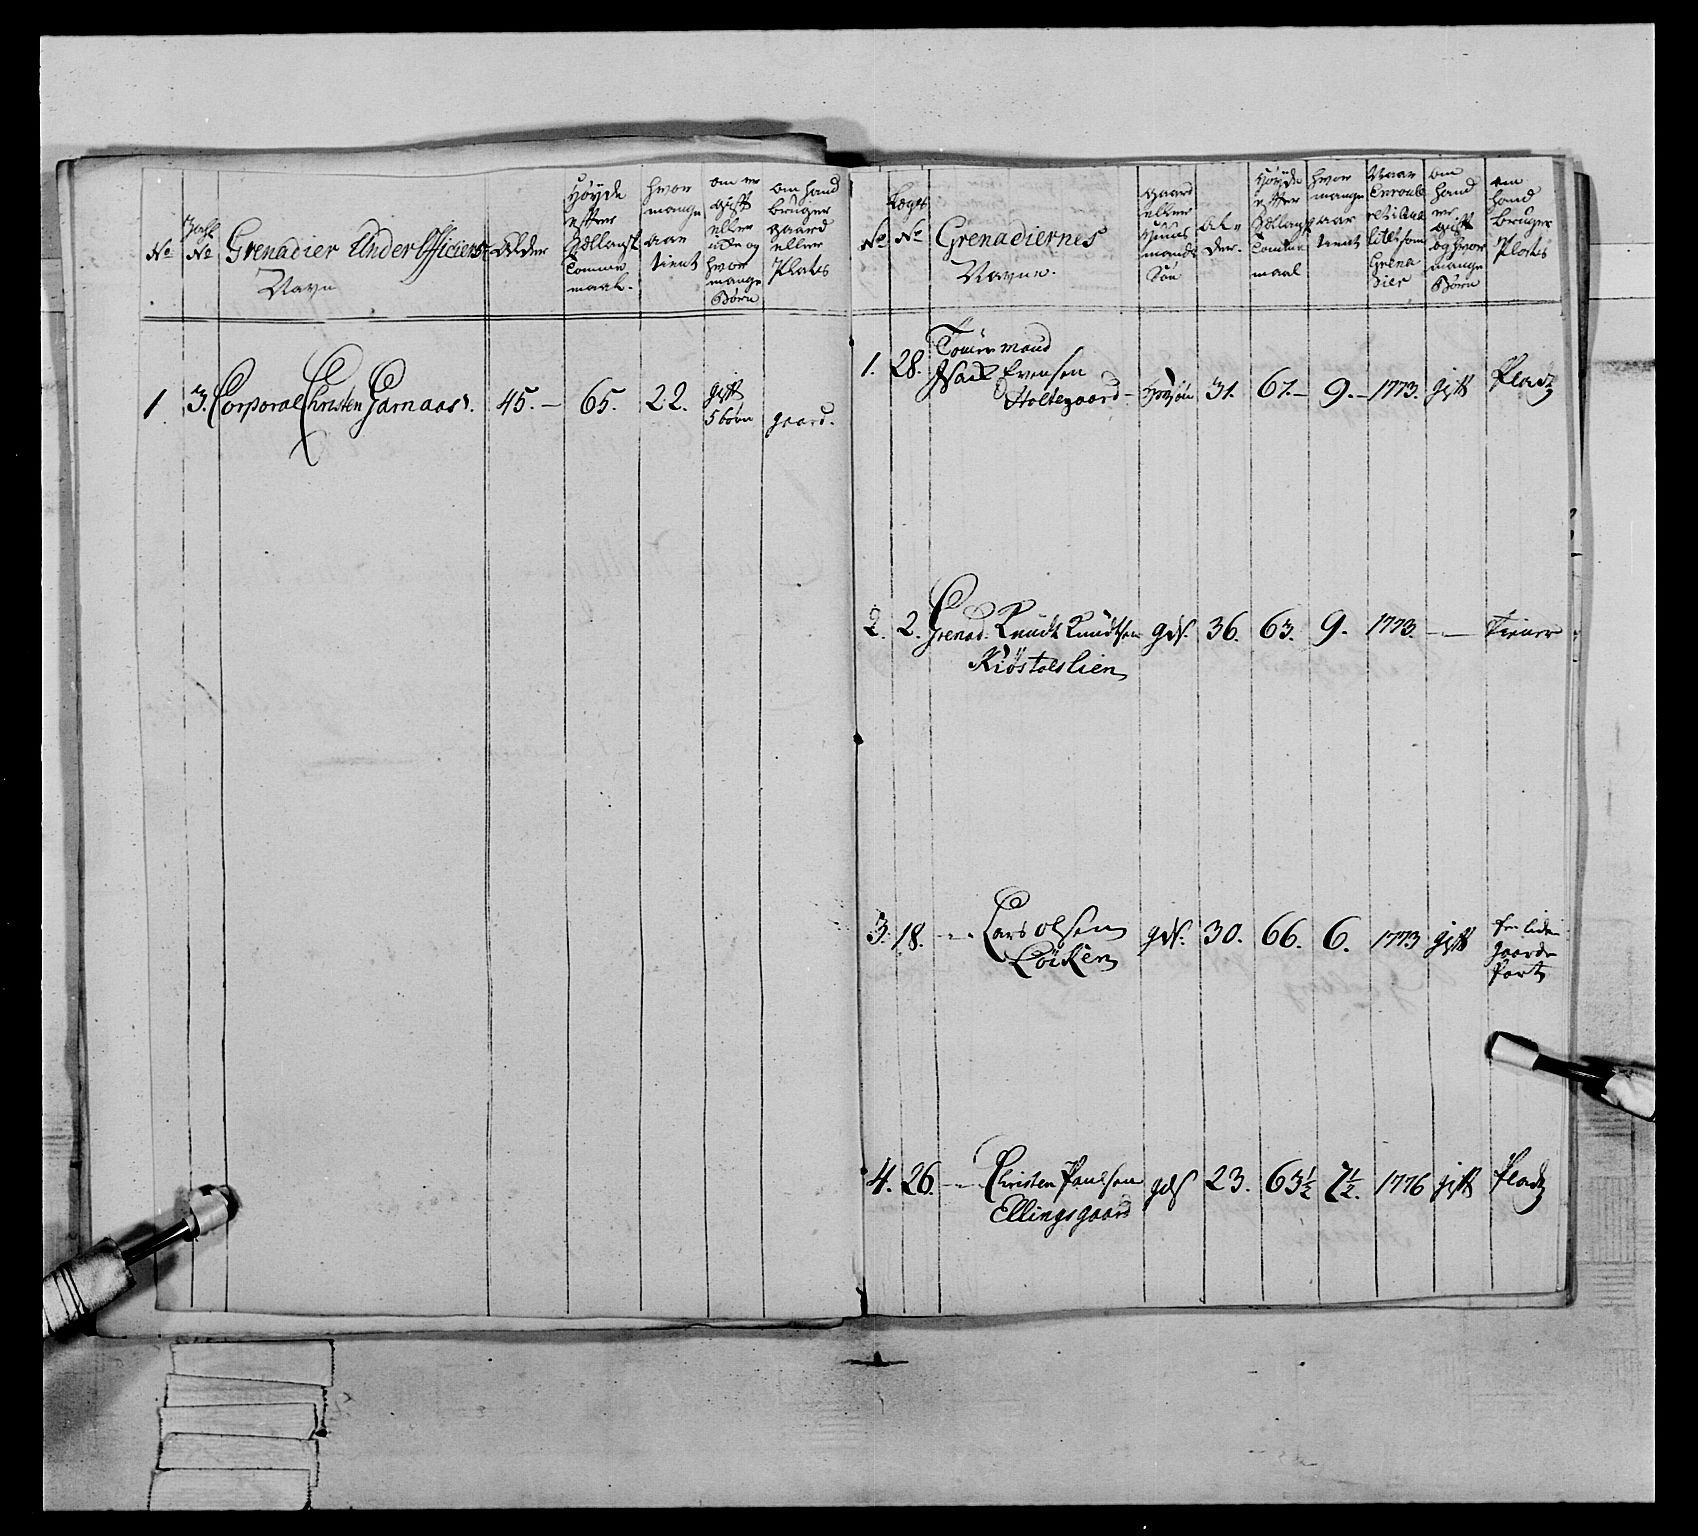 No
No
Grenadier UnderOfficiers
Navn
Alder
Høyde
efter
Sællansk
Tomme
maal.
hvor
mange
aar
tient
om er
gift
eller
icke og
hvor
mange
Børn
om hand
bruger
gaard
eller
Plads
1
3.
Corporal Christen Garnaas.
45.
65.
22.
gift
5 børn
gaard.
No
Lægs
No
Grenadiernes
Navne.
gaard
eller
Huus
mands
Søn
Al-
der.
Høyde
efter
Sællansk
Tomme
maal
hvor
mange
aar
tient
Naar
som
Grena
dier
om
hand
er
gift
og hvor
mange
Børn
om
hand
bruger
Plads
1.
28.
Tømermand
Isack Evensen
Holtegaard
31.
67.
9.
1773.
gift
Pladz
2.
2.
Grenad. Knudt Knudtsen
Kiøstolslien
gds.
36.
63.
9.
1773.
Tiener
3.
18.
Lars Olsen
Løiken
gds.
30.
66.
6.
1773
gift
gaarde
Part
4.
26.
Christen Paulsen
Ellingsgaard
gds
23.
63½
7½.
1776
gift
Pladz